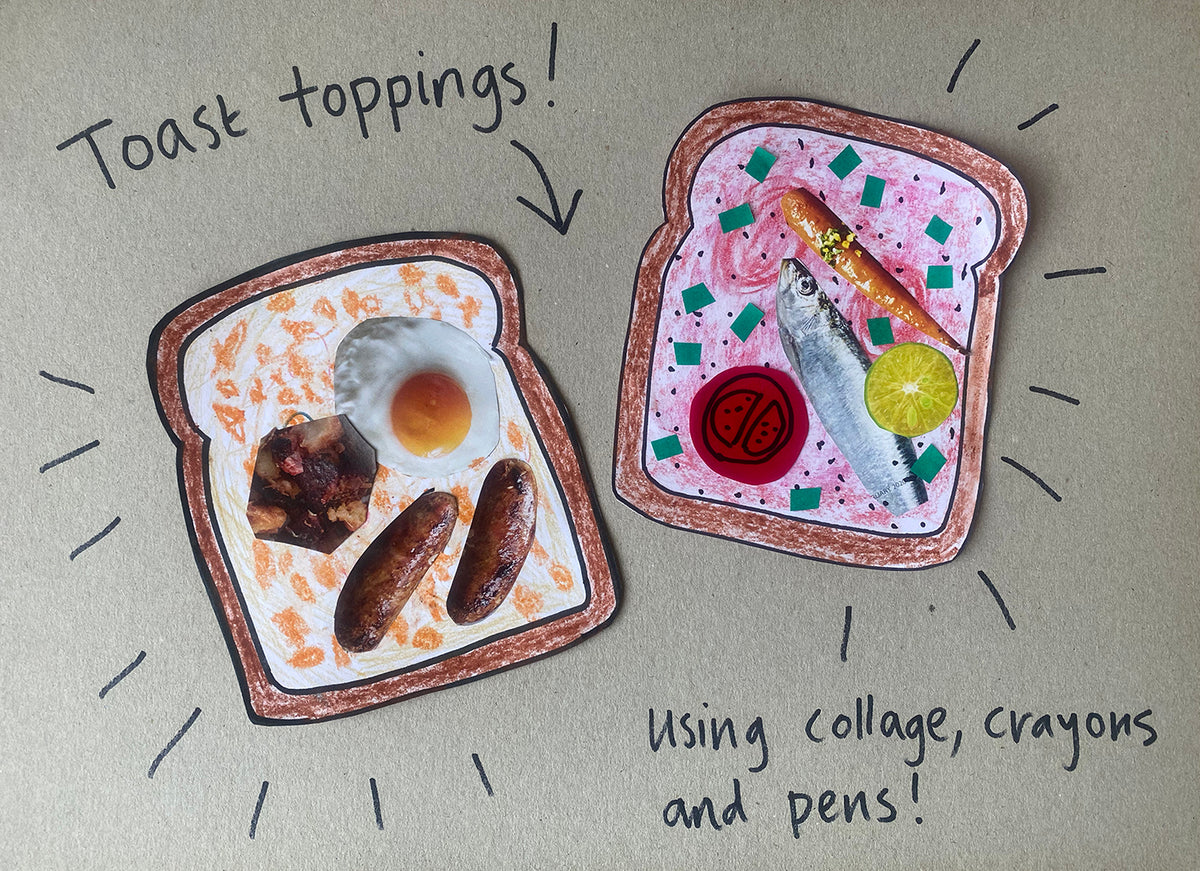 Toast toppings!
using collage, crayons
and pens!